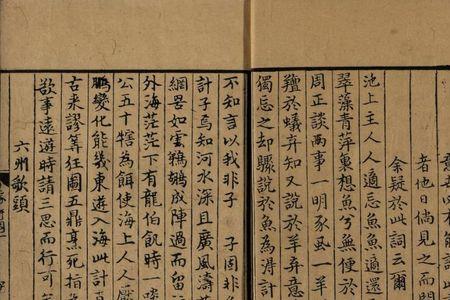 者他日倘見之而問
余疑於此詞云爾
池上主人人適忘魚魚適還
翠藻青萍裏想魚兮無便於
周正談兩事一明豕虱一羊
羶於蟻弃知又說於羊弃意
獨忘之却驟說於魚為得計
不知言以我非子 子固非
計子焉知河水深且廣風濤
網罟如雲鵜鶘成陣過而留
外海茫茫下有龍伯飢時一
公五十犗為餌使海上人人厭
鵬變化能幾東遊入海此計直
古来謬筭狂圖五鼎烹死指
欲事遠遊時請三思而行可
六州歌頭